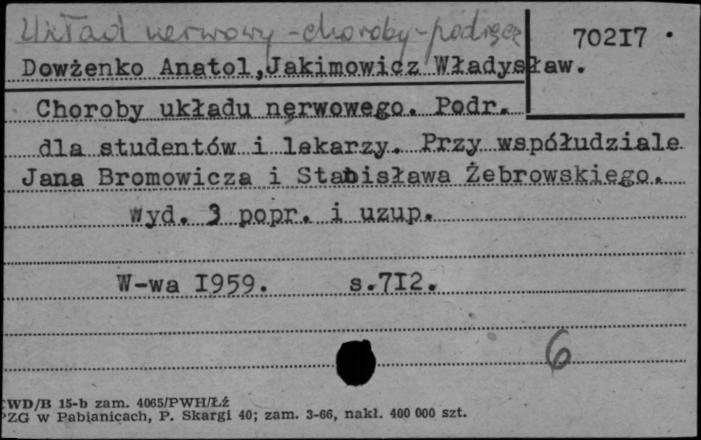 Układ nerwowy - choroby - podręcz
70217
Dowżenko Anatol, Jakimowicz Władysław.
Choroby układu nerwowego. Podr.
dla studentów i lekarzy. Przy współudziale
Jana Bromowicza i Stanisława Żebrowskiego.
Wyd. 3 popr. i uzup.
W-wa I959. s.7I2.
6
CWD/B 15-b zam. 4065/PWH/Łź
PZG w Pabianicach, P. Skargi 40; zam. 3-66, nakł. 400 000 szt.